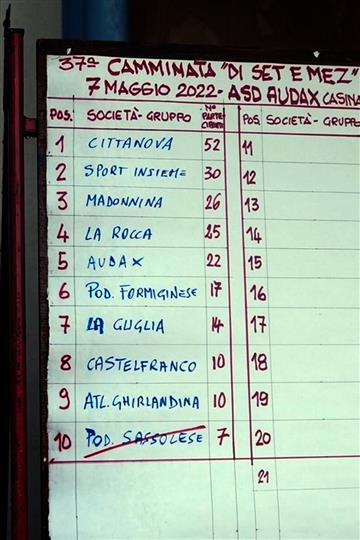 37ª CAMMINATA "DI SET E MEZ"
7 MAGGIO 2022 - ASD AUDAX CASINA
POS. SOCIETÀ - GRUPPO Nº PARTE- CIPANTI POS. SOCIETÀ - GRUPPO
1 CITTANOVA 52 11
2 SPORT INSIEME 30 12
3 MADONNINA 26 13
4 LA ROCCA 25 14
5 AUDAX 22 15
6 POD. FORMIGINESE 17 16
7 LA GUGLIA 14 17
8 CASTELFRANCO 10 18
9 ATL. GHIRLANDINA 10 19
10 POD. SASSOLESE 7 20
21